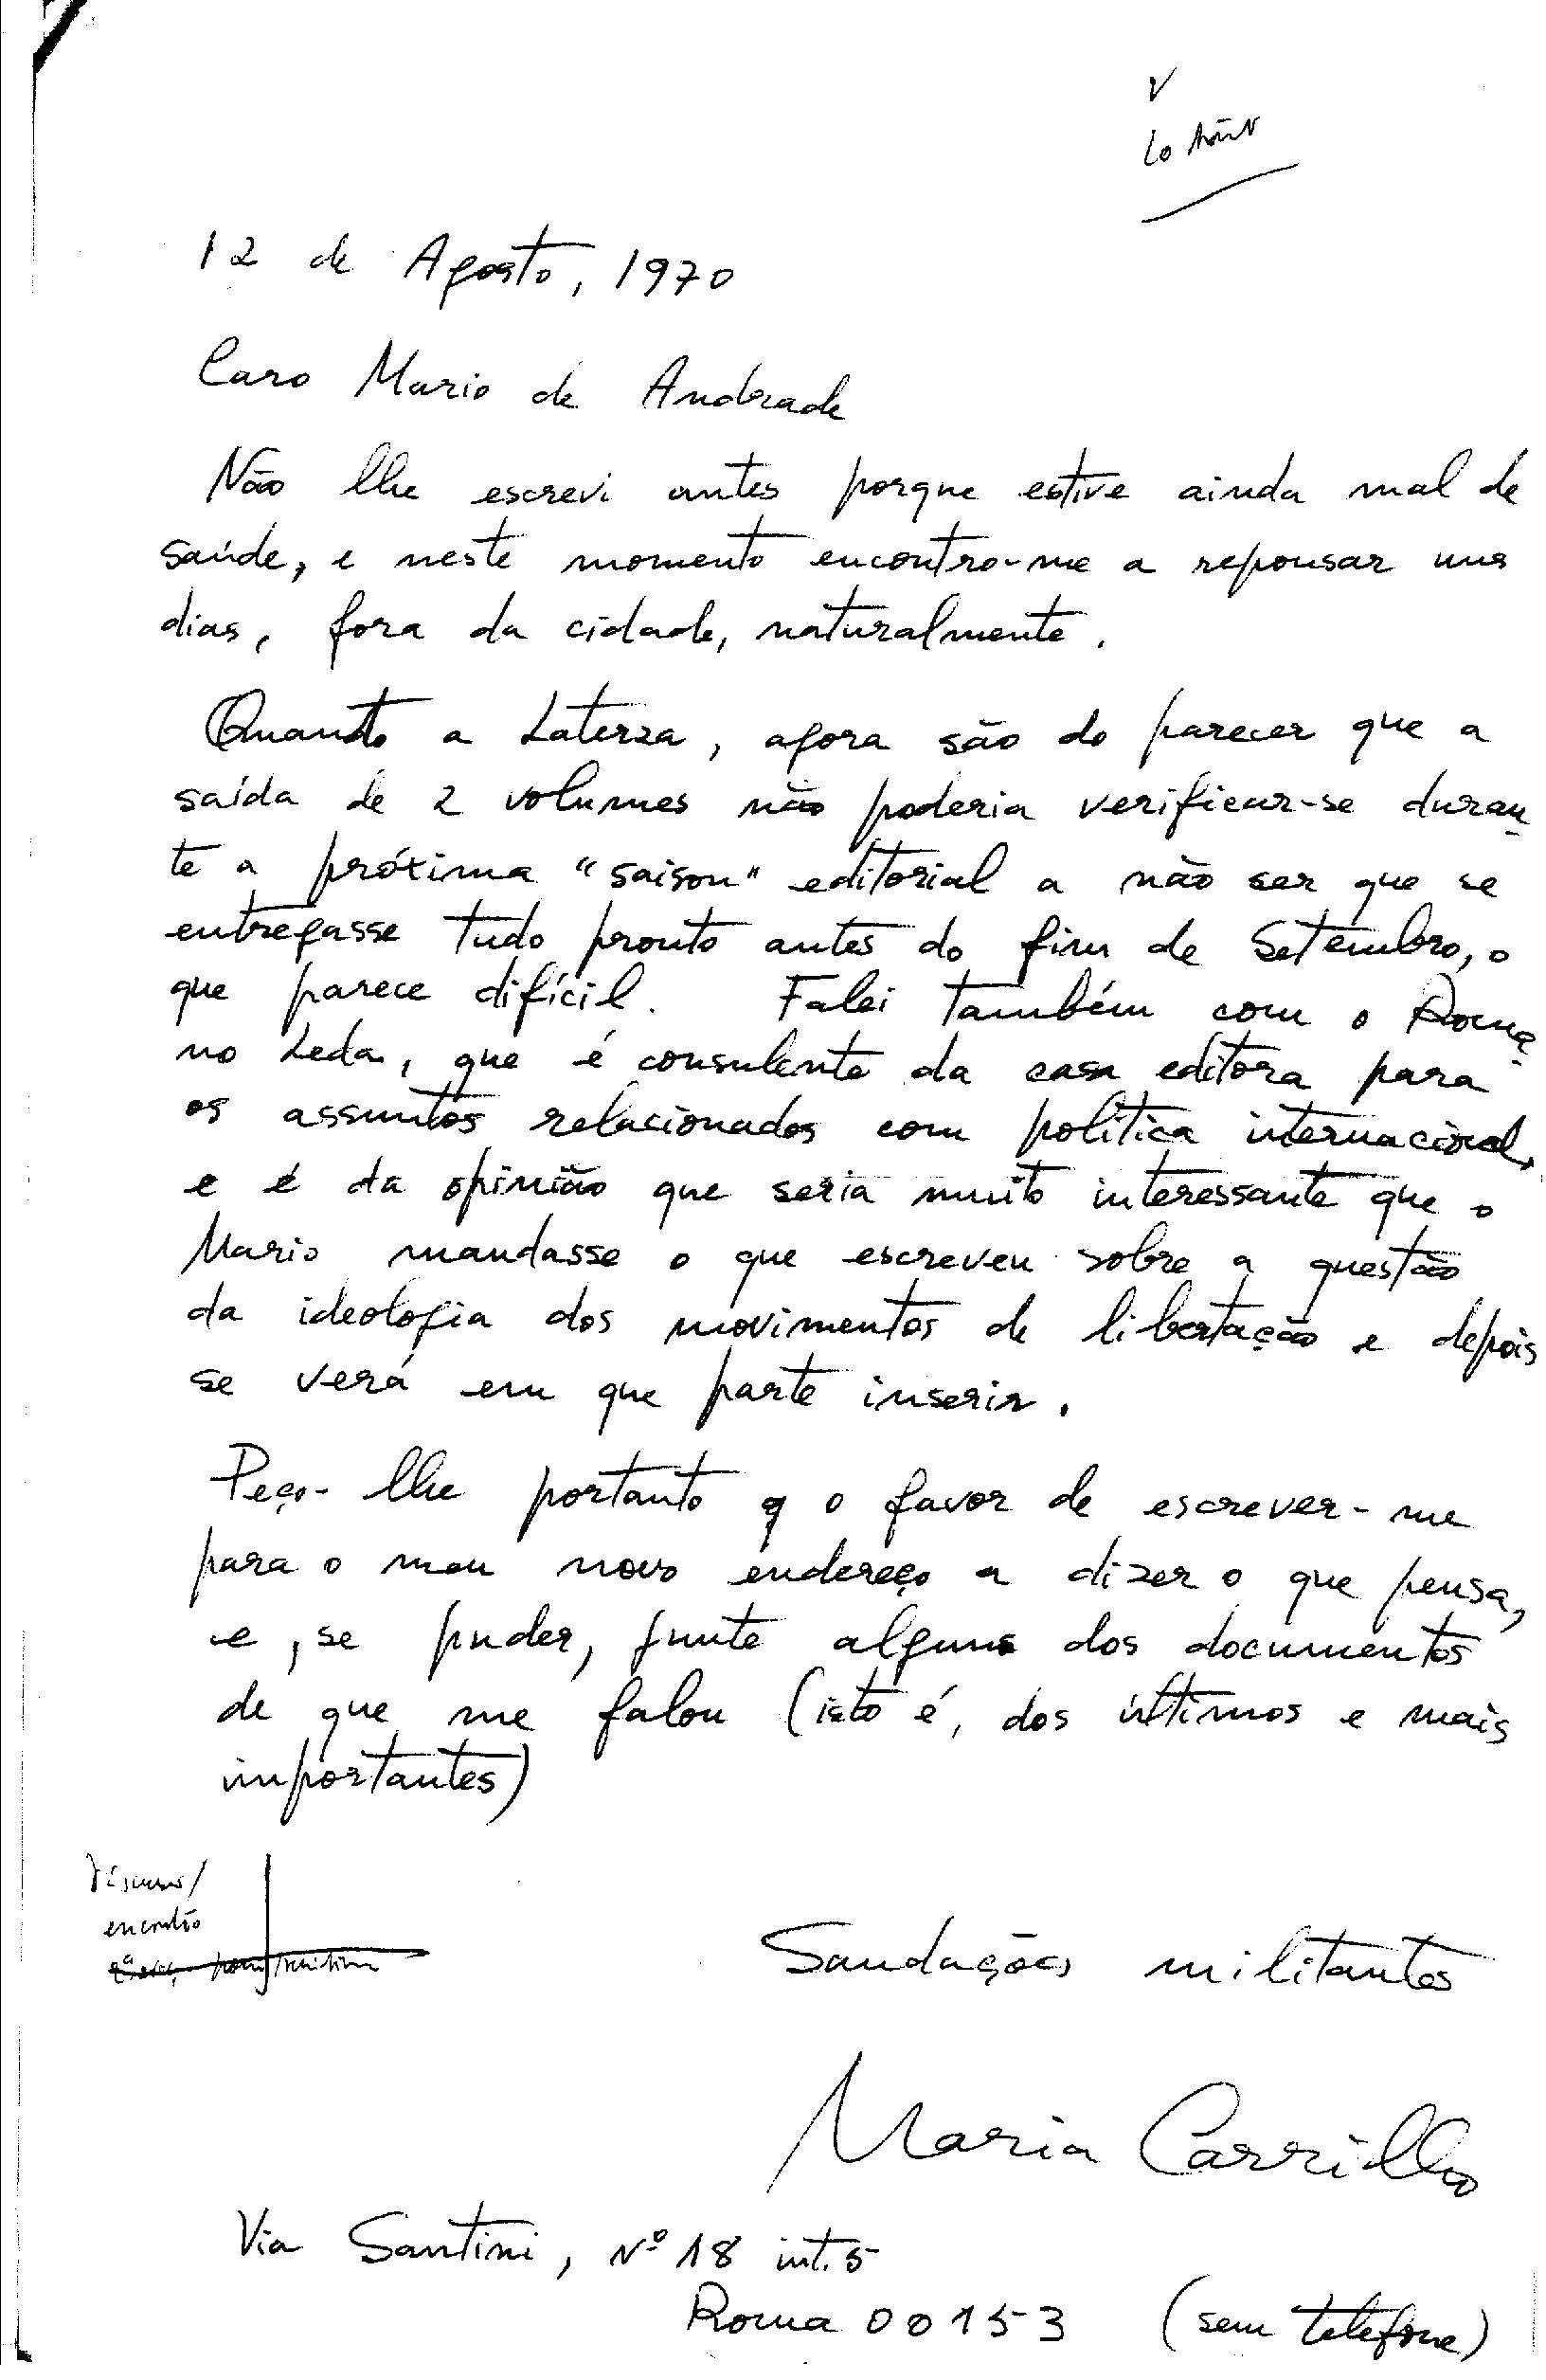 12 de Agosto, 1970
Caro Mario de Andrade
Não lhe escrevi antes porque estive ainda mal de
saúde, e neste momento encontro-me a repousar uns
dias, fora da cidade, naturalmente.
Quanto a Laterza, agora são do parecer que a
saída de 2 volumes não poderia verificar-se duran
te a próxima "saison" editorial a não ser que se
entregasse tudo pronto antes do fim de Setembro, o
que parece difícil. Falei também com o Roma
no Leda, que é consulente da casa editora para
os assuntos relacionados com política internacional,
e é da opinião que seria muito interessante que o
Mario mandasse o que escreveu sobre a questão
da ideologia dos movimentos de libertação e depois
se verá em que parte inserir.
Peço-lhe portanto q o favor de escrever-me
para o meu novo endereço a dizer o que pensa,
e, se puder, junte alguns dos documentos
de que me falou (isto é, dos últimos e mais
importantes)
encontro
Saudações militantes
Maria Carrilho
Via Santini, Nº 18 int. 5
Roma 00153 (sem telefone)